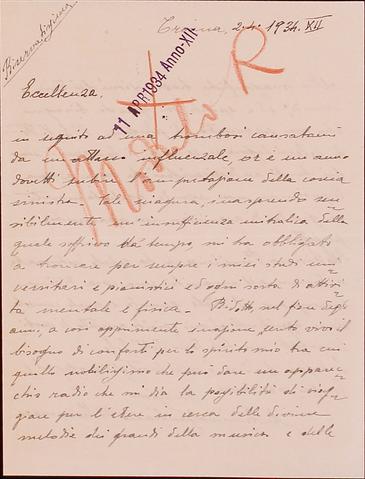 Riservatissima
Troina 2.4.1934.XII
11 APR 1934 Anno XII
Eccellenza.
in seguito ad una trombosi causatami
da un attacco influenzale, or è un anno
dovetti subire l'amputazione della coscia
sinistra. Tale sciagura, inasprendo sen
sibilmente un'insufficienza mitralica della
quale soffrivo da tempo, mi ha obbligato
a troncare per sempre i miei studi uni
versitari e pianistici ed ogni sorta di attivi
tà mentale e fisica. Ridotto, nel fiore degli
anni, a così opprimente inazione, sento vivo il
bisogno di conforti per lo spirito mio tra cui
quello nobilissimo che può dare un apparec
chio radio che mi dia la possibilità di viag
giare per l'etere in cerca delle divine
melodie dei grandi della musica e delle